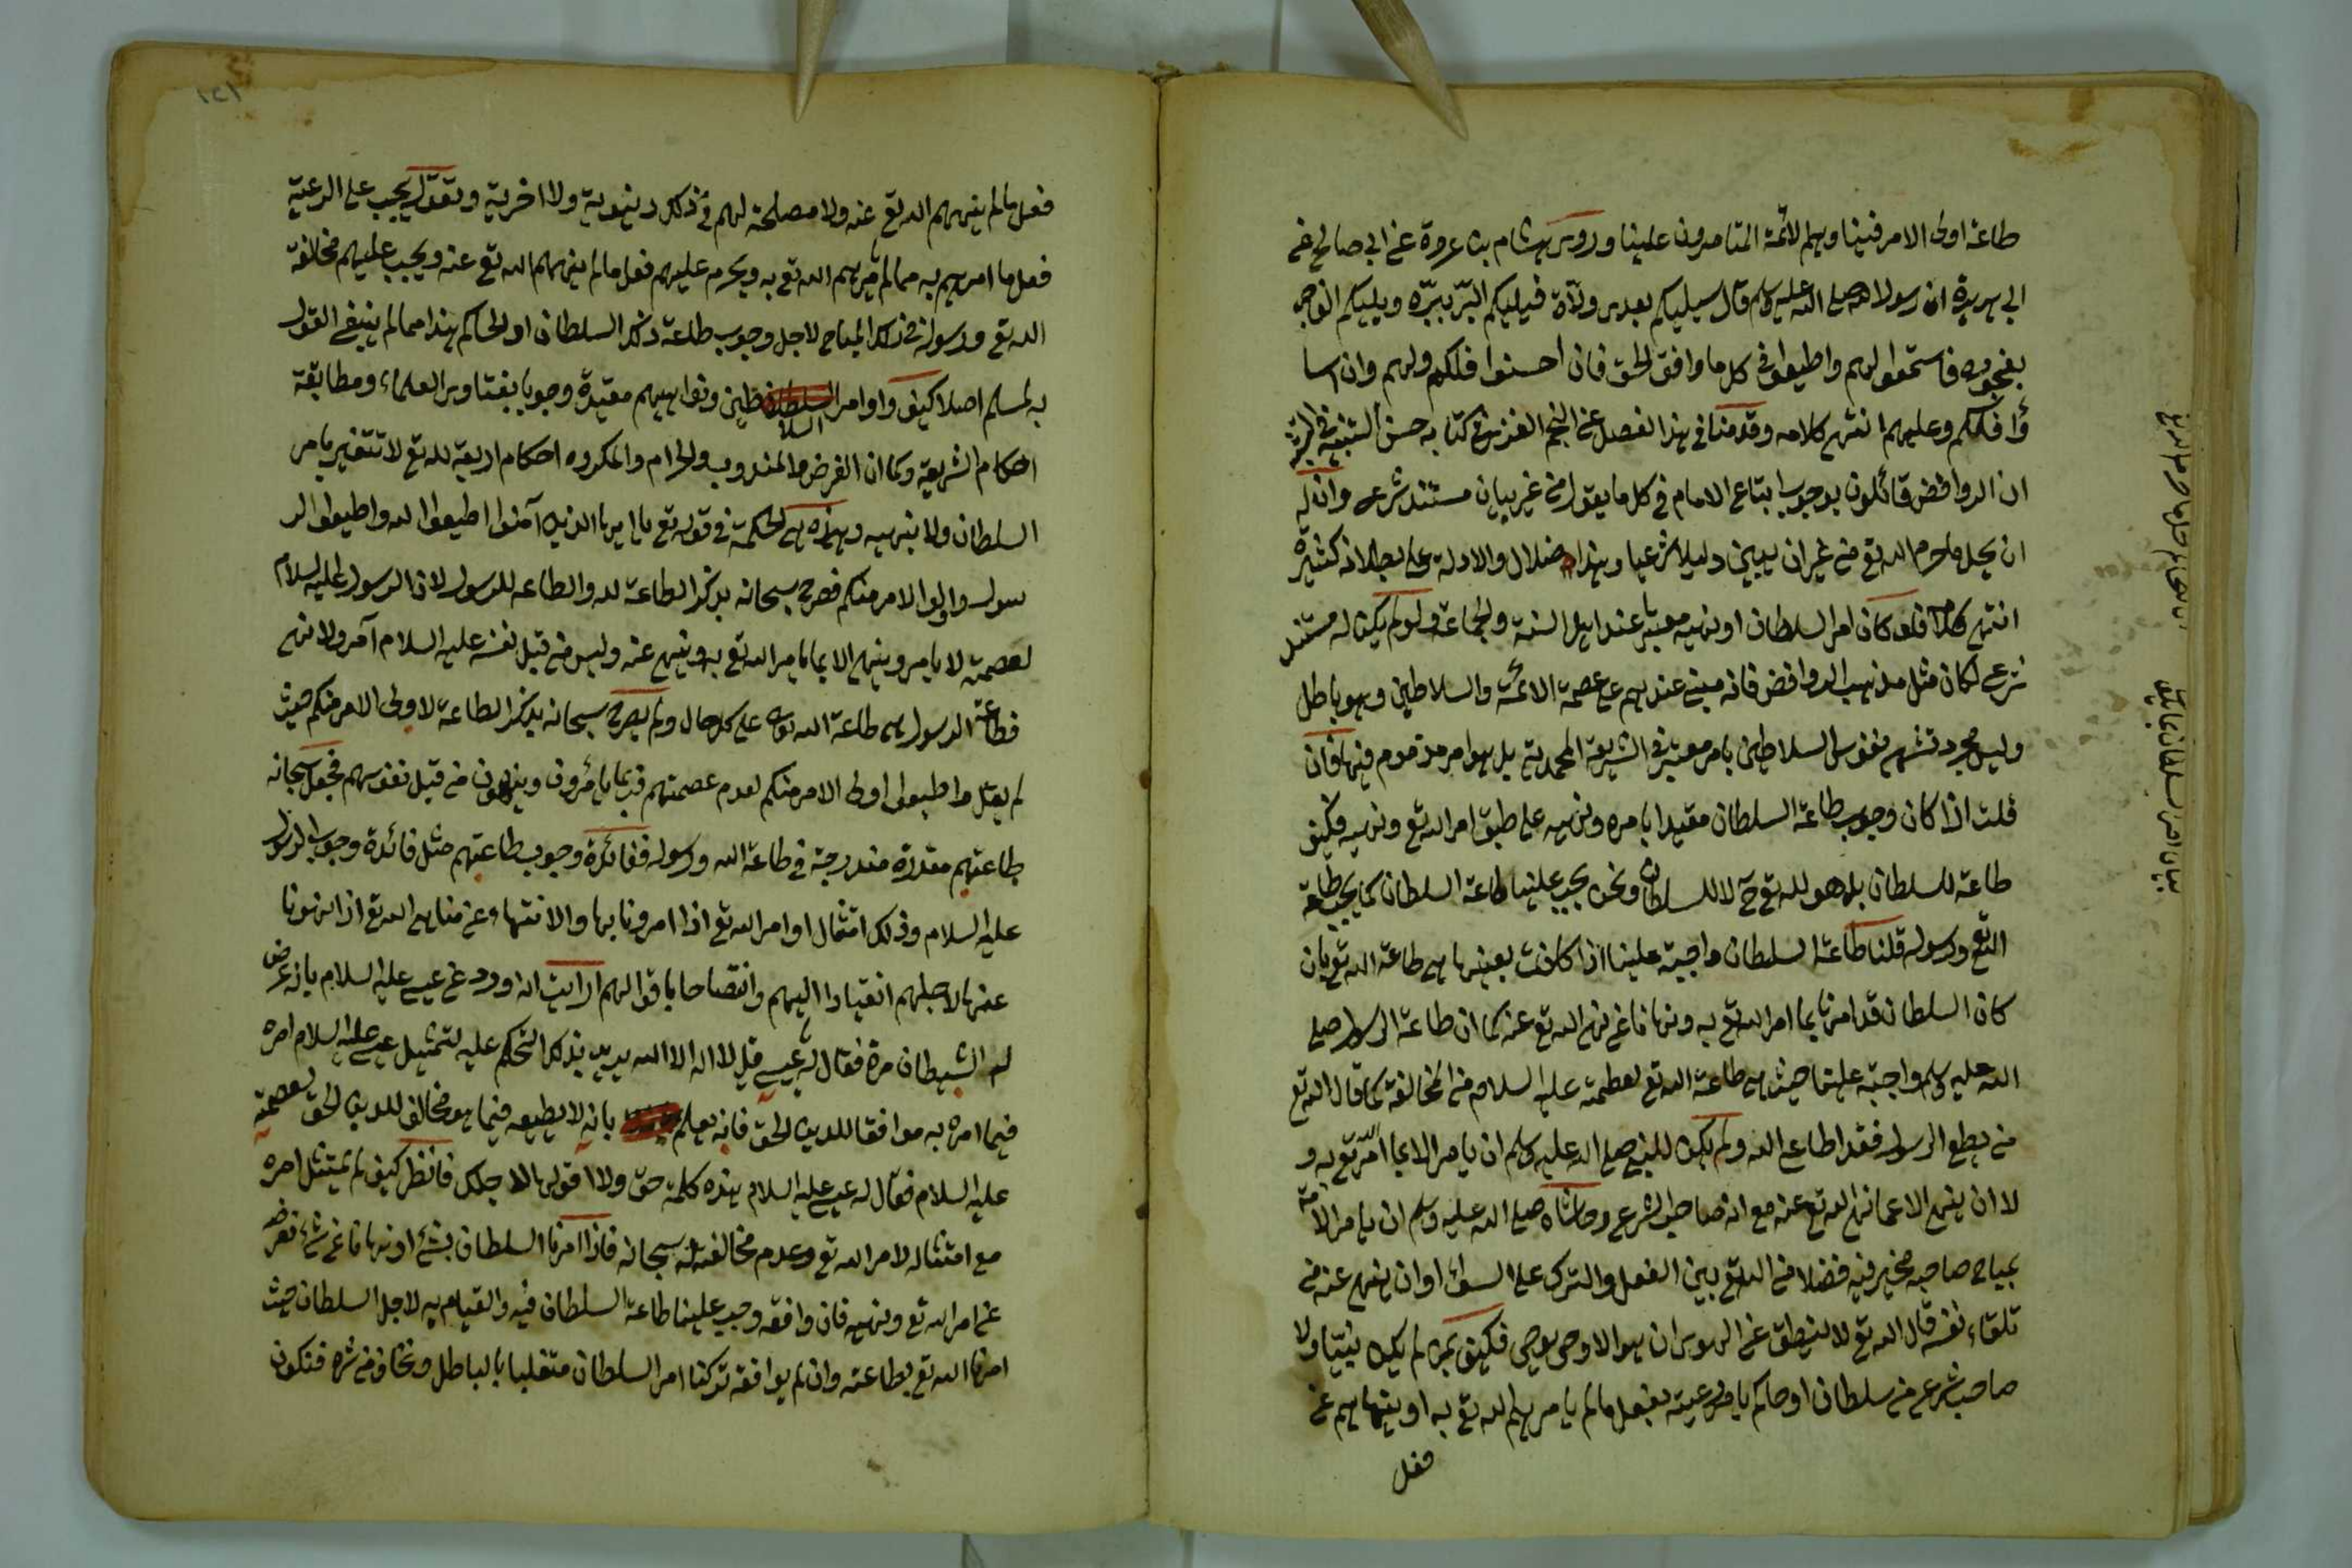 طاعة اولى الامر فينا وهم الائمة المتامرون علينا وروى هشام بن عروة عن ابي صالح عن
ابي هريرة ان رسول الله صلى الله عليه وسلم قال سيليكم بعدى ولاة فيليكم البر ببره ويليكم الفاجر
بفجوره فاستمعوا لهم واطيعوا في كل ما وافق الحق فان احسنوا فلكم ولهم وان اسا
ؤا فلكم وعليهم انتهى كلامه وقدمنا في هذا الفصل عن النجم الغزى في كتابه حسن التنبه في التشبه
ان الروافض قائلون بوجوب اتباع الامام في كل ما يقول من غير بيان مستند شرعى وان له
ان يحل ما حرم الله تع من غير ان يبين دليلا شرعيا وهذا ضلال والادلة على بطلانه كثيرة
انتهى كلامه فلو كان امر السلطان او نهيه معتبرا عند اهل السنة والجماعة ولو لم يكن له مستند
شرعى لكان مثل مذهب الروافض فانه مبنى عندهم على عصمة الائمة والسلاطين وهو باطل
وليس مجرد تشهى نفوس السلاطين بامر معتبر في الشريعة المحمدية بل هو امر مذموم فيها فان
قلت اذا كان وجوب طاعة السلطان مقيدا بامره ونهيه على طبق امر الله تع ونهيه فكيف
طاعة للسلطان بل هو لله تع ح لا للسلطان ونحن يجب علينا طاعة السلطان كما يجب طاعة
الله تع ورسوله قلنا طاعة السلطان واجبة علينا اذا كانت بعينها هى طاعة الله تع بان
كان السلطان قد امرنا بما امر الله تع به ونهانا عن نهى الله تع عنه كما ان طاعة الرسول صلى
الله عليه وسلم واجبة علينا حيث هى طاعة الله تع لعصمته عليه السلام من المخالفة كما قال الله تع
من يطع الرسول فقد اطاع الله ولم يكن للنبى صلى الله عليه وسلم ان يامر الا بما امر الله تع به و
لا ان ينهى الا عما نهى الله تع عنه مع انه صاحب الشرع وحاشاه صلى الله عليه وسلم ان يامر الامة
بمباح صاحبه مخير فيه فضلا من الله تع بين الفعل والترك على السواء او ان ينهى عنه من
تلقاء نفسه قال الله تع لا ينطق عن الهوى ان هو الا وحى يوحى فكيف بمن لم يكن نبيا ولا
صاحب شرع من سلطان او حاكم يامر رعيته بفعل ما لم يامرهم الله تع به او ينهاهم عن
فعل
١٢١
فعل ما لم ينههم الله تع عنه ولا مصلحة لهم في ذلك دنيوية ولا اخروية وتقول يجب على الرعية
فعل ما امرهم به مما لم يامرهم الله تع به ويحرم عليهم فعل ما لم ينههم الله تع عنه ويجب عليهم مخالفة
الله تع ورسوله في ذلك المباح لاجل وجوب طاعة ذلك السلطان او الحاكم هذا مما لم ينبغى القول
به لمسلم اصلا كيف واوامر السلاطين ونواهيهم مقيدة وجوبا بفتاوى العلماء ومطابقة
احكام الشريعة وكما ان الفرض والمندوب والحرام والمكروه احكام اربعة لله تع لا تتغير بامر
السلطان ولا بنهيه وهذه هى الحكمة في قوله تع يا ايها الذين آمنوا اطيعوا الله واطيعوا الر
سول واولى الامر منكم فصرح سبحانه بذكر الطاعة لله والطاعه للرسول لان الرسول عليه السلام
لعصمته لا يامر وينهى الا بما يامر الله تع به وينهى عنه وليس من قبل نفسه عليه السلام آمر ولا نهى
فطاعة الرسول هى طاعة الله تعالى على كل حال ولم يصرح سبحانه بذكر الطاعة لاولى الامر منكم حيث
لم يقل واطيعوا اولى الامر منكم لعدم عصمتهم فربما يامرون وينهون من قبل نفوسهم فجعل سبحانه
طاعتهم مقدرة مندرجة في طاعة الله ورسوله ففائدة وجوب طاعتهم مثل فائدة وجوب الرسول
عليه السلام وذلك امتثال اوامر الله تع اذا امرونا بها والانتهاء عن مناهى الله تع اذا نهونا
عنها لاجلهم انقيادا اليهم وانتصاحا باقوالهم ارايت انه ورد عن عيسى عليه السلام بانه عرض
له الشيطان مرة فقال له يا عيسى قل لا اله الا الله يريد بذلك التحكم عليه لتمثيل عيسى عليه السلام امره
فيما امره به موافقا للدين الحق فانه يعلم بانه لا يطيعه فيما هو مخالف للدين الحق لعصمته
عليه السلام فقال له عيسى عليه السلام هذه كلمة حق ولا اقولها لاجلك فانظر كيف لم يمتثل امره
مع امتثاله لامر الله تع وعدم مخالفته له سبحانه فاذا امرنا السلطان بشئ او نهانا عن شئ نعرضه
على امر الله تع ونهيه فان وافقه وجب علينا طاعة السلطان فيه والقيام به لاجل السلطان حيث
امرنا الله تع بطاعته وان لم يوافقه تركنا امر السلطان متغلبا بالباطل ونخاف من شره فنكون